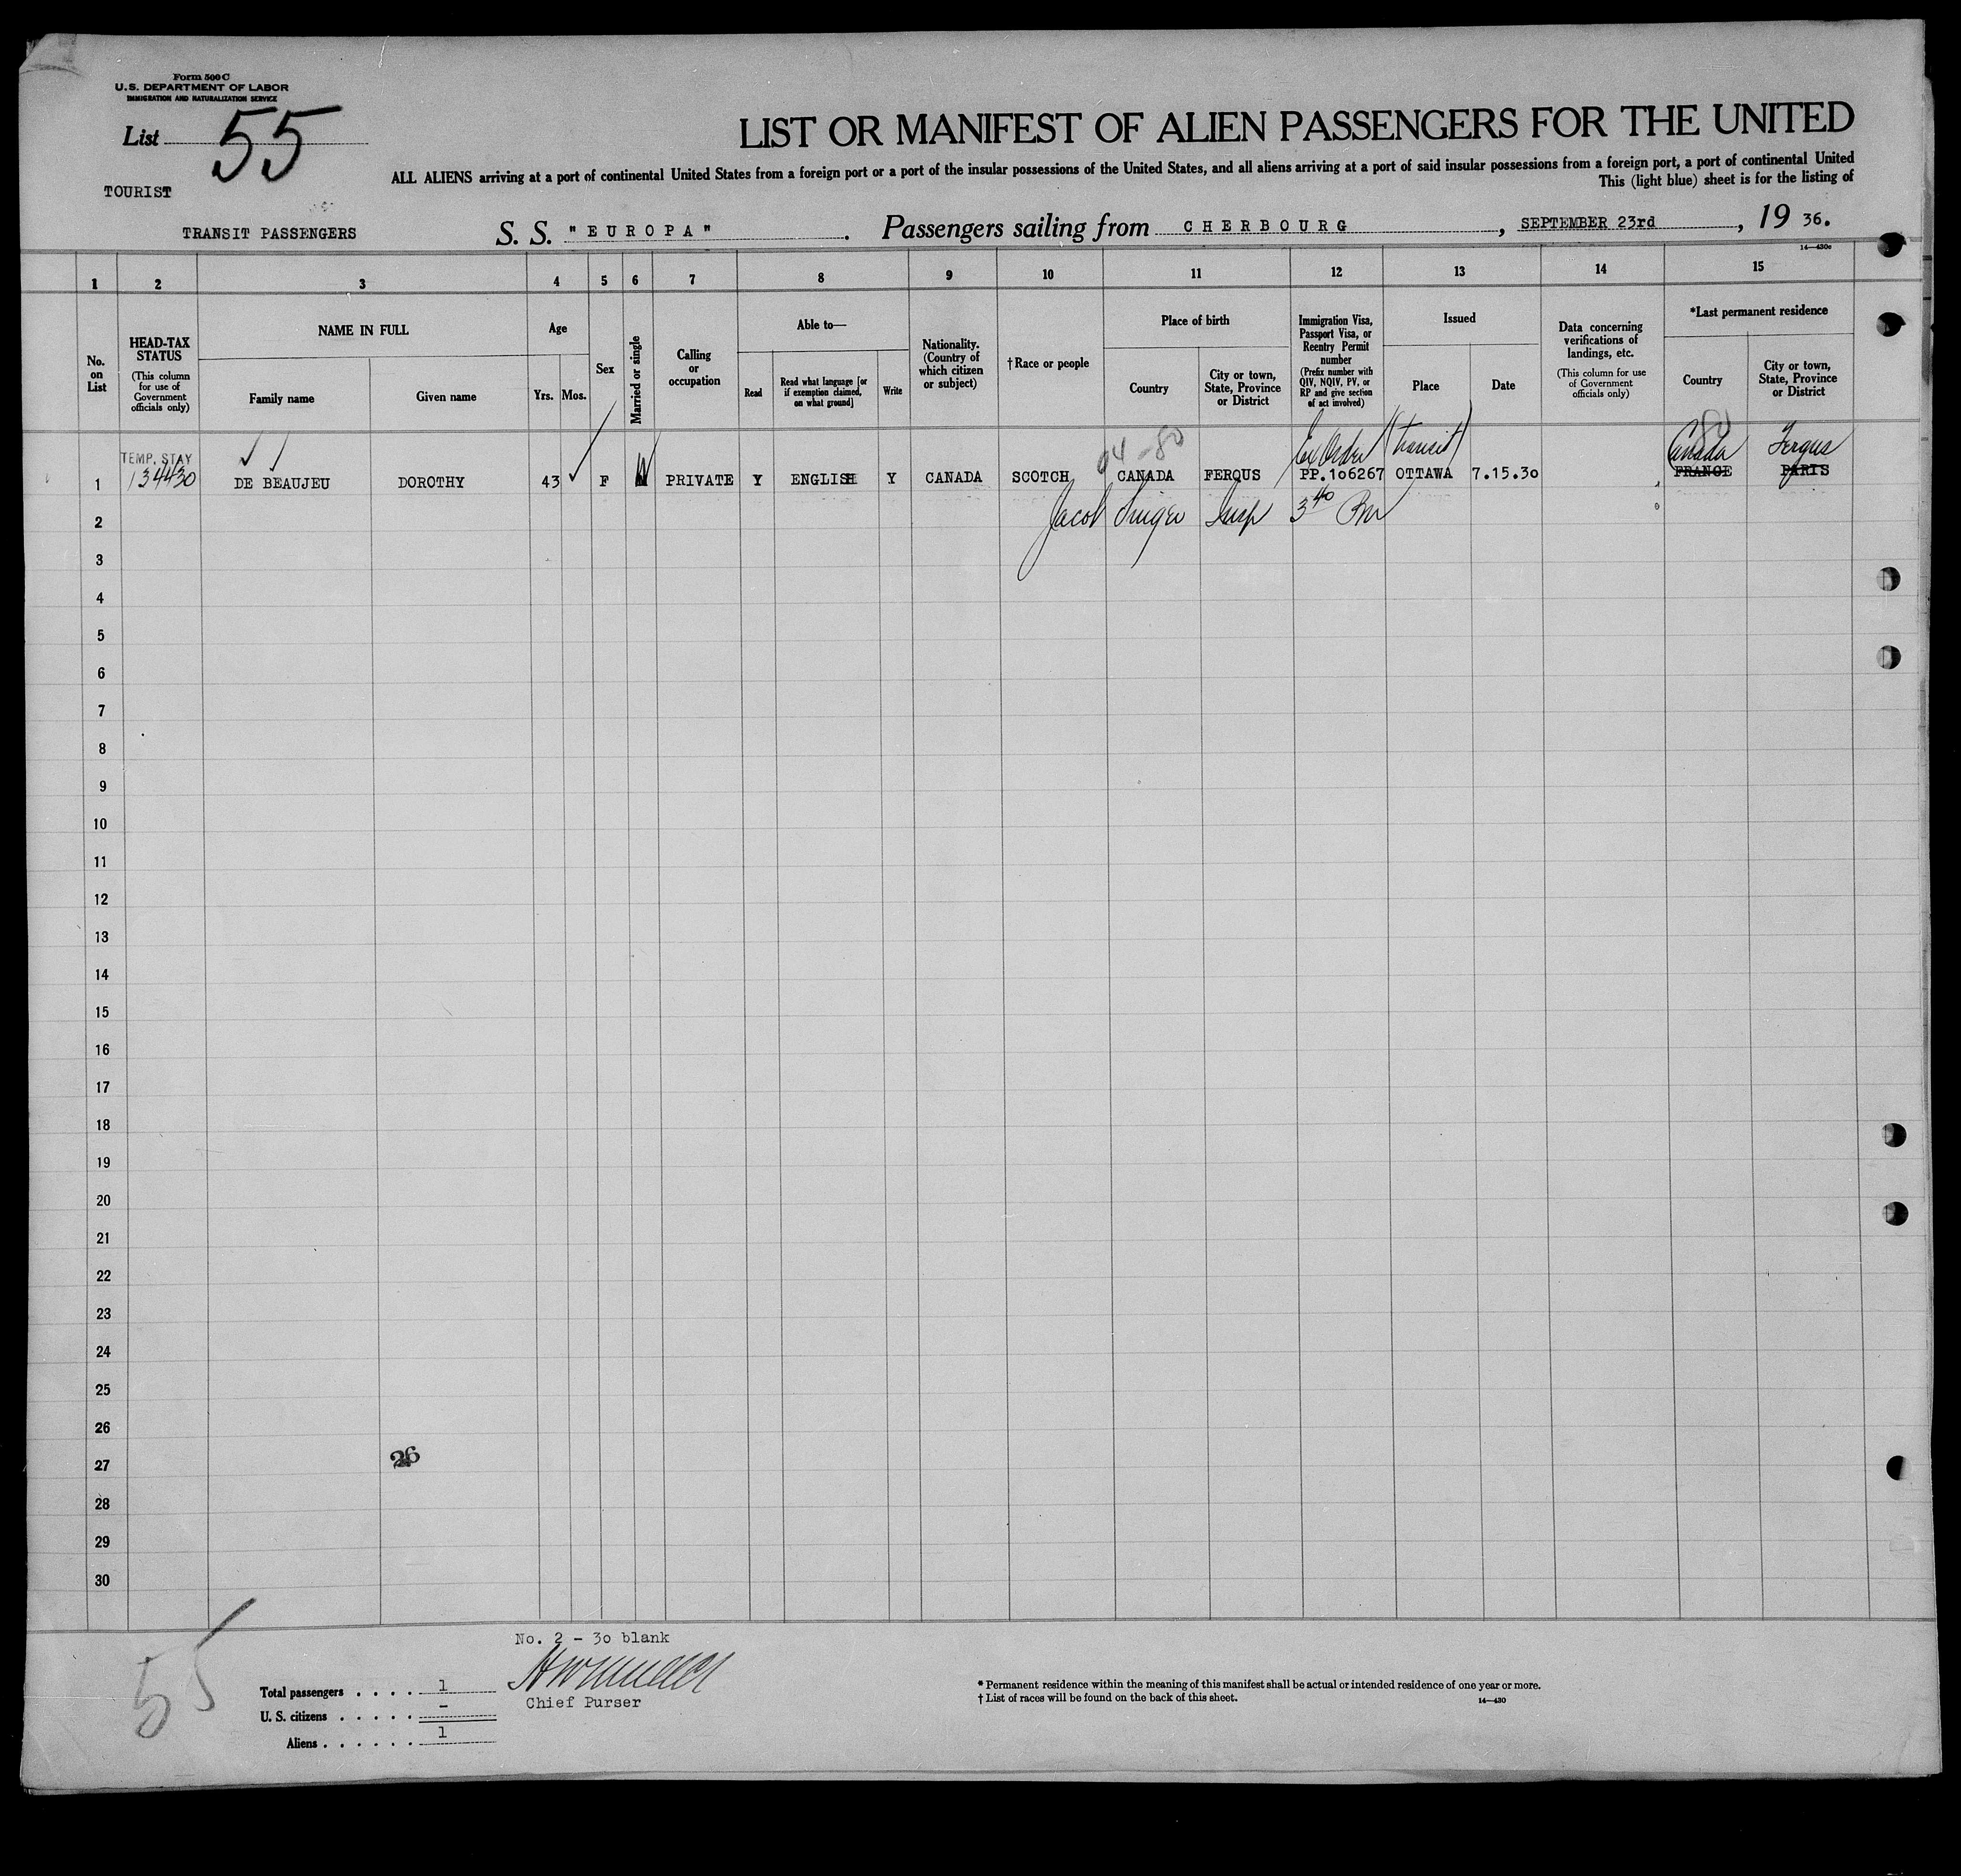 Form 500 C
U. S. DEPARTMENT OF LABOR
IMMIGRATION AND NATURALIZATION SERVICE
List 55
LIST OR MANIFEST OF ALIEN PASSENGERS FOR THE UNITED
ALL ALIENS arriving at a port of continental United States from a foreign port or a port of the insular possessions of the United States, and all aliens arriving at a port of said insular possessions from a foreign port, a port of continental United
This (light blue) sheet is for the listing of
TOURIST
TRANSIT PASSENGERS S. S. "EUROPA". Passengers sailing from CHERBOURG, SEPTEMBER 23rd, 19 36.
14—430c
1 2 3 4 5 6 7 8 9 10 11 12 13 14 15
No. on List
HEAD-TAX STATUS (This column for use of Government officials only)
NAME IN FULL
Family name Given name
Age
Yrs. Mos.
Sex
Married or single
Calling or occupation
Able to—
Read Read what language [or if exemption claimed, on what ground] Write
Nationality. (Country of which citizen or subject)
†Race or people
Place of birth
Country City or town, State, Province or District
Immigration Visa, Passport Visa, or Reentry Permit number (Prefix number with QIV, NQIV, PV, or RP and give section of act involved)
Issued
Place Date
Data concerning verifications of landings, etc. (This column for use of Government officials only)
*Last permanent residence
Country City or town, State, Province or District
TEMP. STAY 04-80 Ex Order (transit) 80 Canada Fergus
1 134430 DE BEAUJEU DOROTHY 43 F W PRIVATE Y ENGLISH Y CANADA SCOTCH CANADA FERQUS PP.106267 OTTAWA 7.15.30 FRANCE PARIS
2 Jacob Singer Insp 3 40 Pm
3
4
5
6
7
8
9
10
11
12
13
14
15
16
17
18
19
20
21
22
23
24
25
26
26
27
28
29
30
No. 2 - 30 blank
55
Total passengers . . . . 1
Chief Purser
U. S. citizens . . . . . -
Aliens . . . . . . 1
* Permanent residence within the meaning of this manifest shall be actual or intended residence of one year or more.
† List of races will be found on the back of this sheet. 14—430